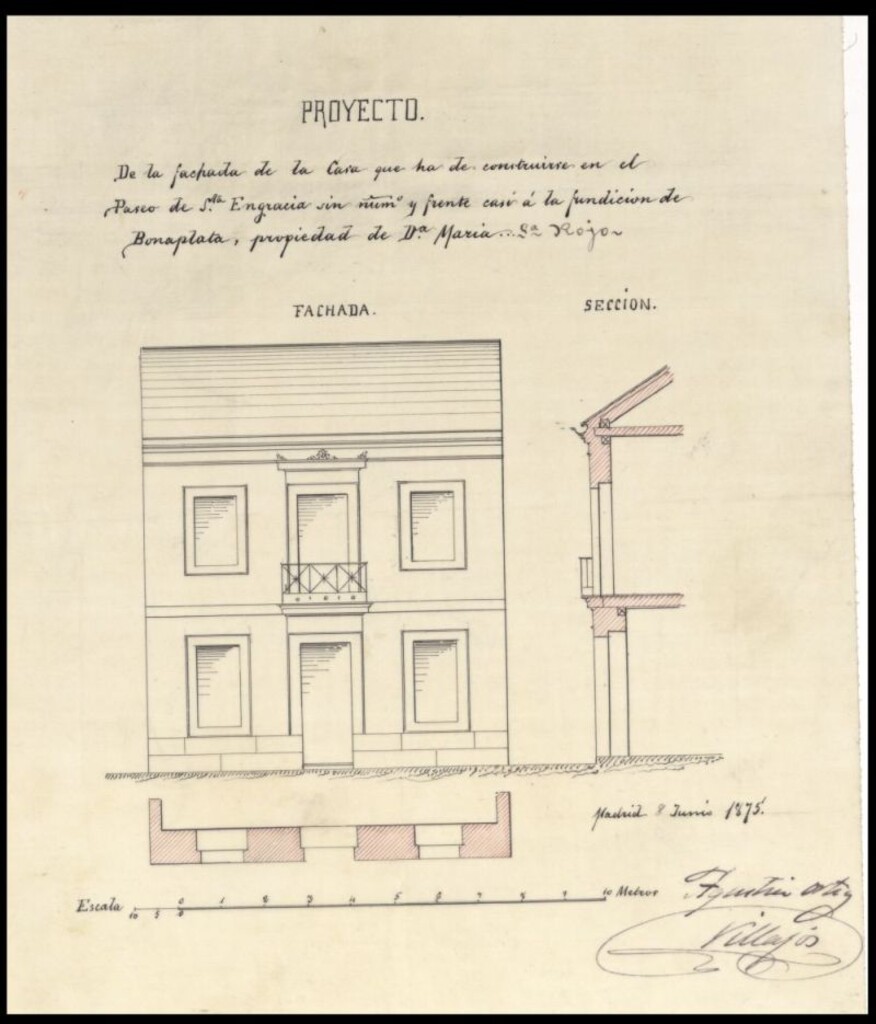 PROYECTO.
De la fachada de la Casa que ha de construirse en el
Paseo de S.ta Engracia sin núm.o y frente casi á la fundicion de
Bonaplata, propiedad de D.a Maria Rojo
FACHADA.
SECCION.
Madrid 8 Junio 1875.
Escala
10 5 0 1 2 3 4 5 6 7 8 9 10 Metros
Agustin Ortiz
Villajos